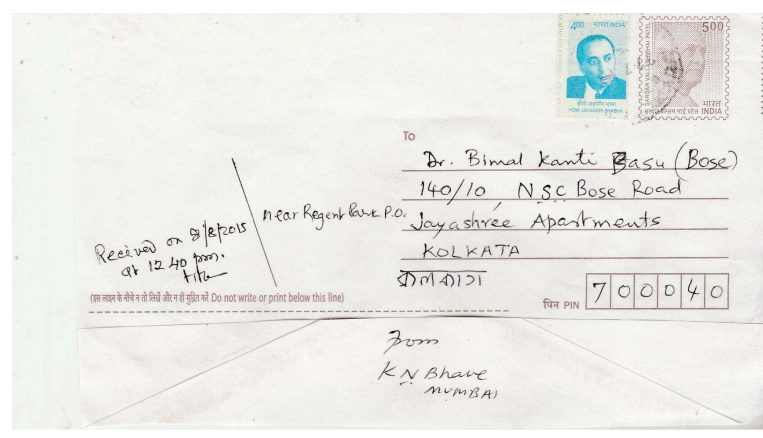 4.00 भारत INDIA
होमी जहांगीर भाभा
HOMI JAHANGIR BHABHA
5.00
SARDAR VALLABHBHAI PATEL
सरदार वल्लभ भाई पटेल
भारत
INDIA
To
Dr. Bimal Kanti Basu (Bose)
140/10, N.S.C Bose Road
near Regent Park P.O. Jayashree Apartments
KOLKATA
Received on 8/8/2015
at 12 40 pm.
(इस लाइन के नीचे न तो लिखें और न ही मुद्रित करें Do not write or print below this line)
पिन PIN 700040
From
K N Bhave
MUMBAI